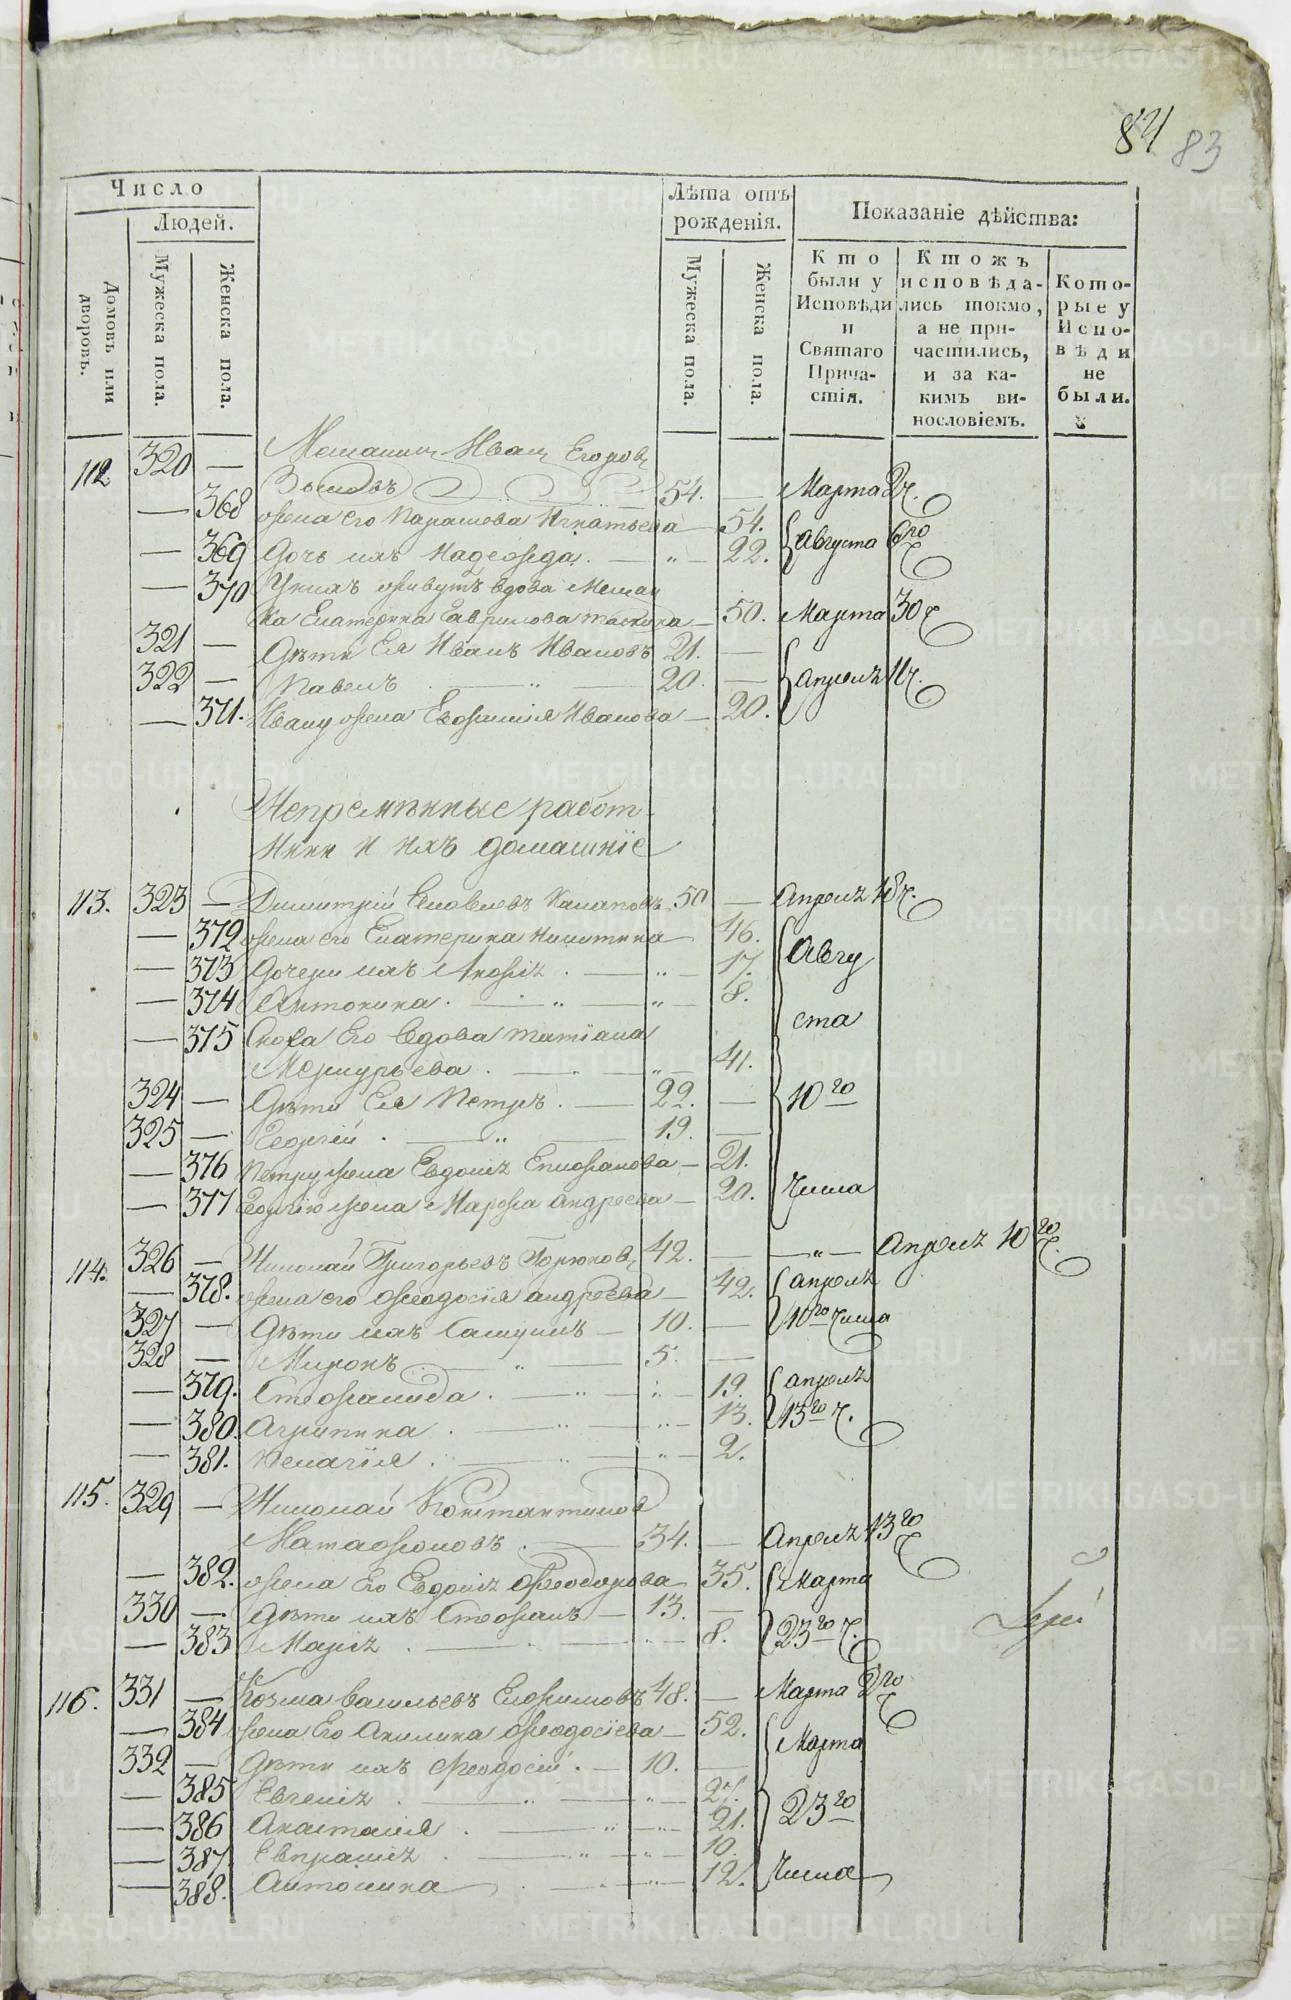 84 83
Число
Людей.
Домовъ или дворовъ.
Мужеска пола.
Женска пола.
Лѣта отъ рожденія.
Мужеска пола.
Женска пола.
Показаніе дѣйства:
Кто были у Исповѣди и Святаго Причастія.
Ктожъ исповѣдались токмо, а не причастились, и за какимъ винословіемъ.
Которые у Исповѣди не были.
112 320 — Мещанинъ Иванъ Егоровъ
54. — Марта 2 ч.
— 368 жена его Параскева Игнатьева — 54.
— 369 Дочь ихъ Надежда. — „ — 22. Августа 6го ч.
— 370 У нихъ живутъ вдова Мещан
ка Екатерина Гаврилова — 50. Марта 30 ч.
321 — Дѣти Ея Иванъ Ивановъ 21. —
322 — Павелъ — „ — 20. — апреля 11 ч.
— 371. Ивану жена Евфимія Иванова — 20.
Непремѣнные работ
ники и ихъ домашніе
113. 323 — Димитрій Яковлевъ 50 — Апреля 18 ч.
— 372 жена его Екатерина Никитина — 46.
— 373 Дочери ихъ — „ — 17. Авгу
— 374 Антонина. — „ — „ — 8.
— 375 Сноха Его вдова Татіана ста
Меркурьева. — „ — „ — 41.
324 — Дѣти Ея Петръ. — 22. — 10го
325 — Георгій. — „ — 19. —
— 376 Петру жена Евдокія Епифанова — 21.
— 377 Георгію жена Марфа Андреева — 20. Числа
114. 326 — Николай Григорьевъ 42. — — „ — Апреля 10го ч.
— 378. жена его Феодосія андреева — 42. апреля
327 — Дѣти ихъ Самуилъ — 10. — 10го Числа
328 — Миронъ — „ — 5. —
— 379. Стефанида. — „ — „ — 19. апреля
— 380. Агрипина. — „ — „ — 13. 13го ч.
— 381. Пелагія. — „ — „ — 2.
115. 329 — Николай Константиновъ
34. — Апреля 13го ч.
— 382. жена Его Евдокія Феодорова 35. Марта
330 — Дѣти ихъ Стефанъ — 13. —
— 383 Марія. — „ — „ — 8. 23го ч.
116. 331 — Козма Васильевъ Ефимовъ 48. — Марта 2го ч.
— 384 жена Его Акилина Феодосіева — 52. Марта
332 — Дѣти ихъ Феодосій. — 10. —
— 385 Евгенія. — „ — „ — 27. 23го
— 386 Анастасія. — „ — „ — 21.
— 387 Евпраксія. — „ — „ — 10.
— 388. Антонина. — „ — „ — 12. Числа
METRIKI.GASO-URAL.RU